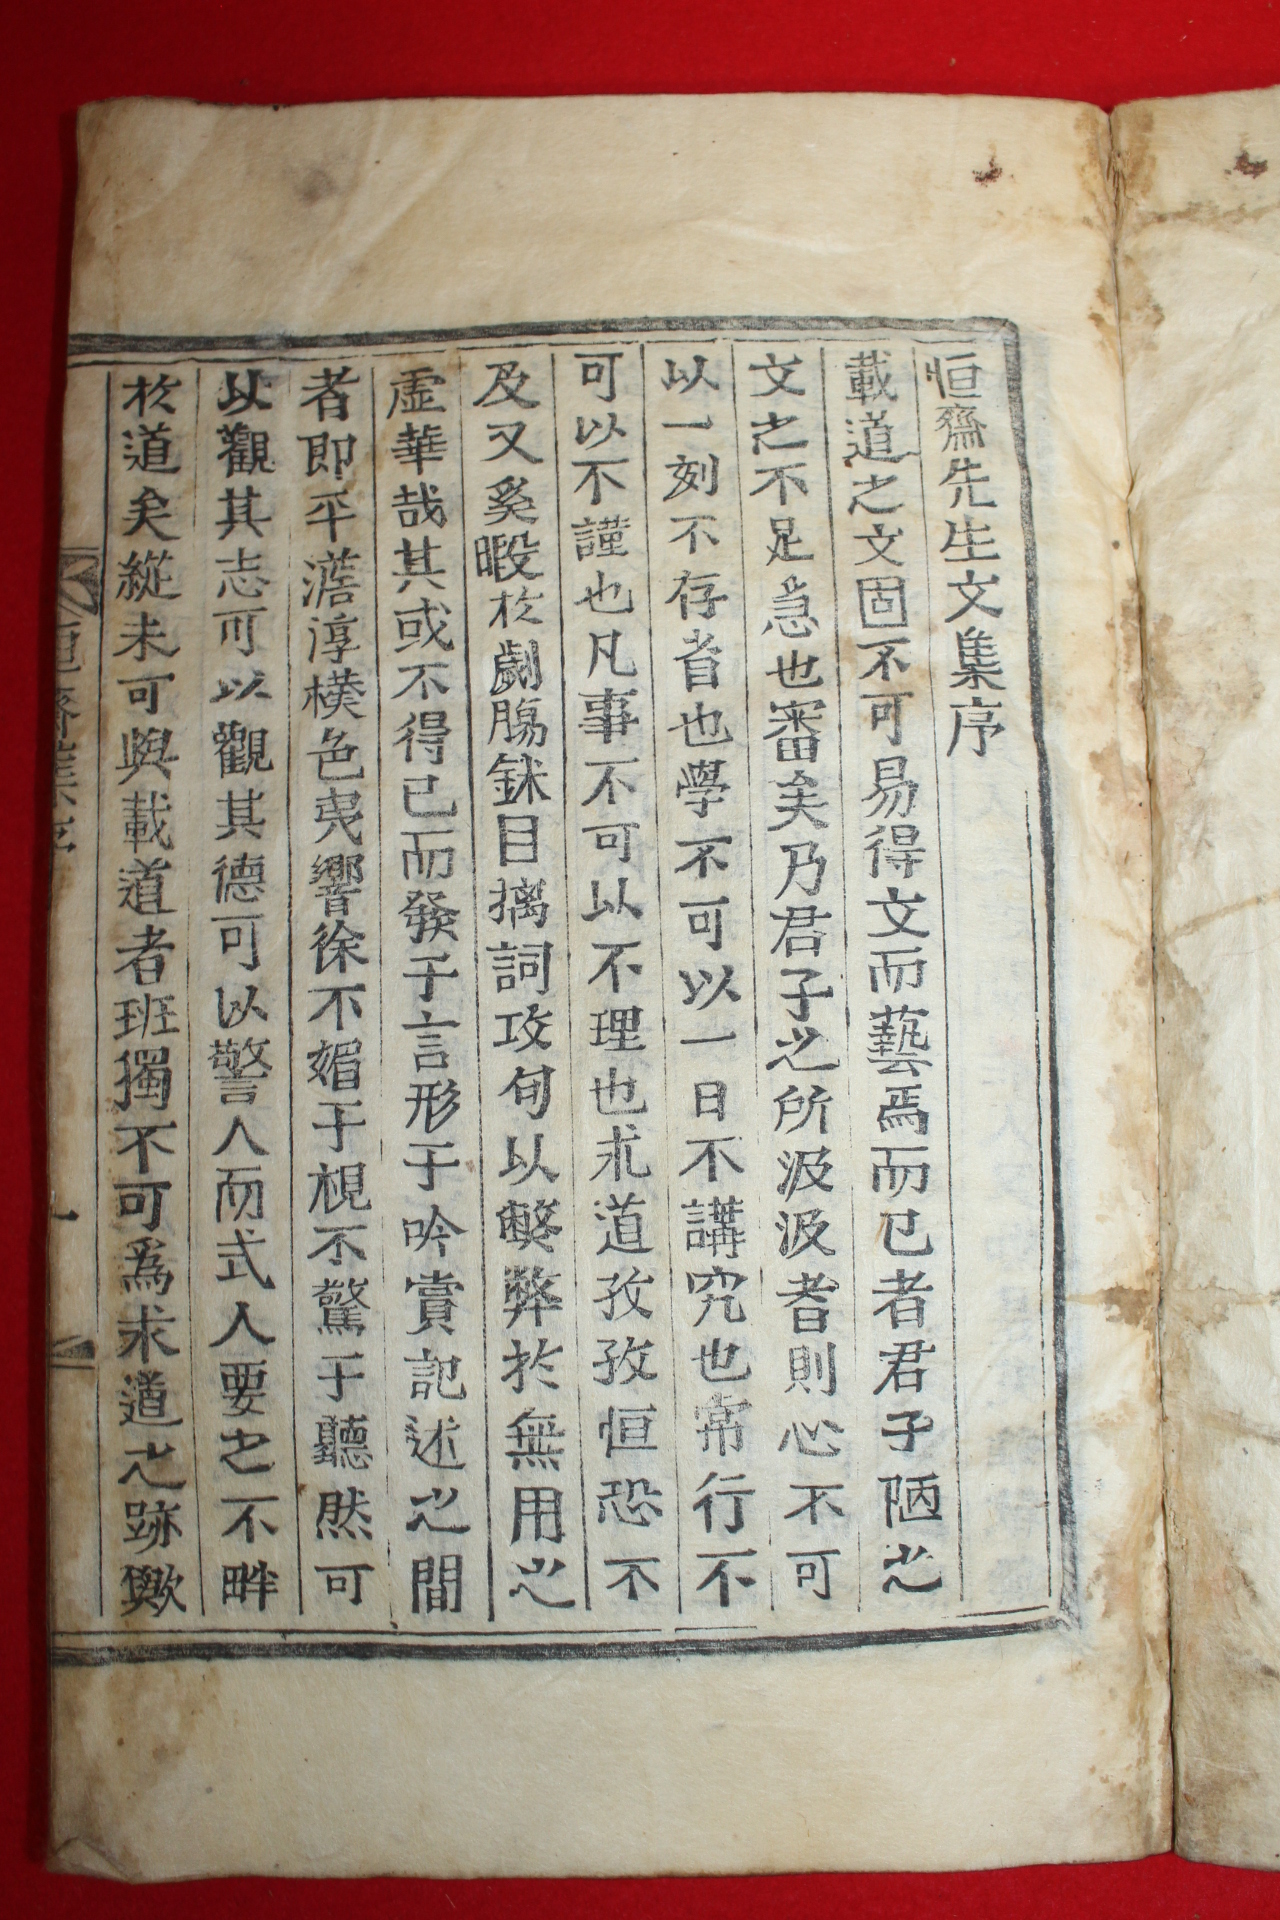 恒齋先生文集序
載道之文固不可易得文而藝焉而已者君子陋之
文之不足急也審矣乃君子之所汲汲者則心不可
以一刻不存省也學不可以一日不講究也常行不
可以不謹也凡事不可以不理也求道孜孜恒恐不
及又奚暇於劌膓鉥目摛詞攻句以蔽弊於無用之
虛華哉其或不得已而發于言形于吟賞記述之間
者即平澹淳樸色夷響徐不媚于視不驚于聽然可
以觀其志可以觀其德可以警人而式人要之不畔
於道矣縱未可與載道者班獨不可爲求道之跡歟
恒齋集序
一